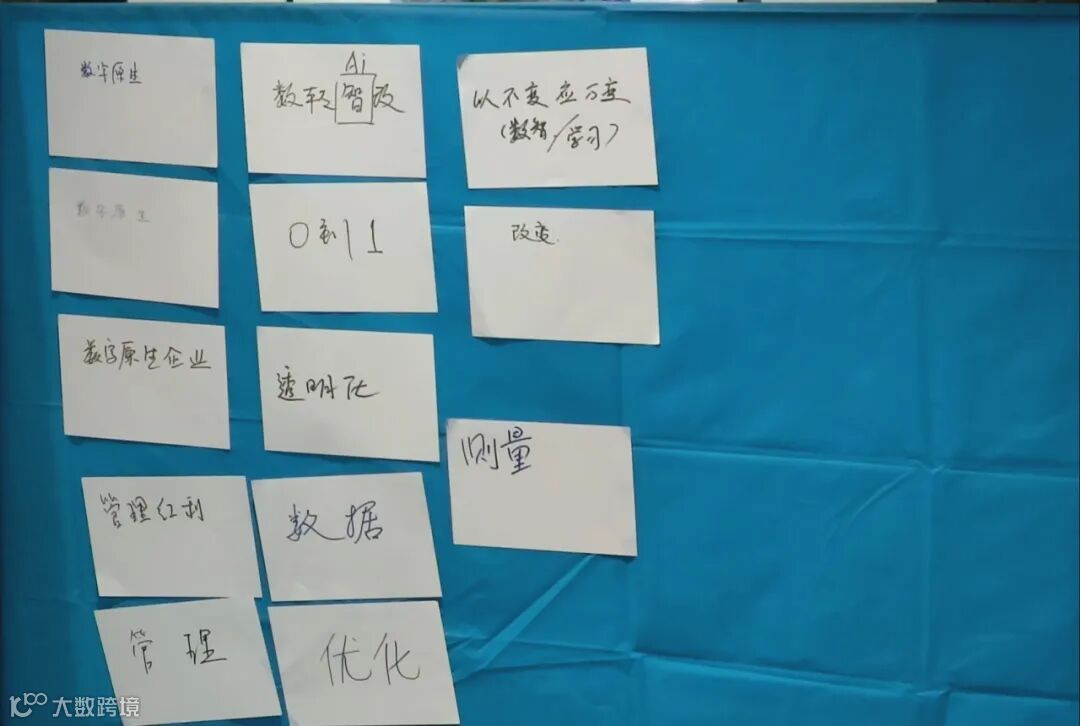 数字原生
数字原生
数字原生企业
管理红利
管理
Ai
数转智改
0到1
透明化
数据
优化
以不变应万变
(数智/学习)
改变
测量
大数跨境